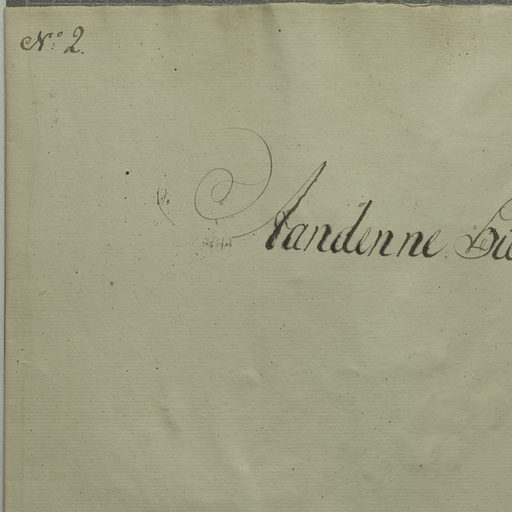 No 2.
Aandenne